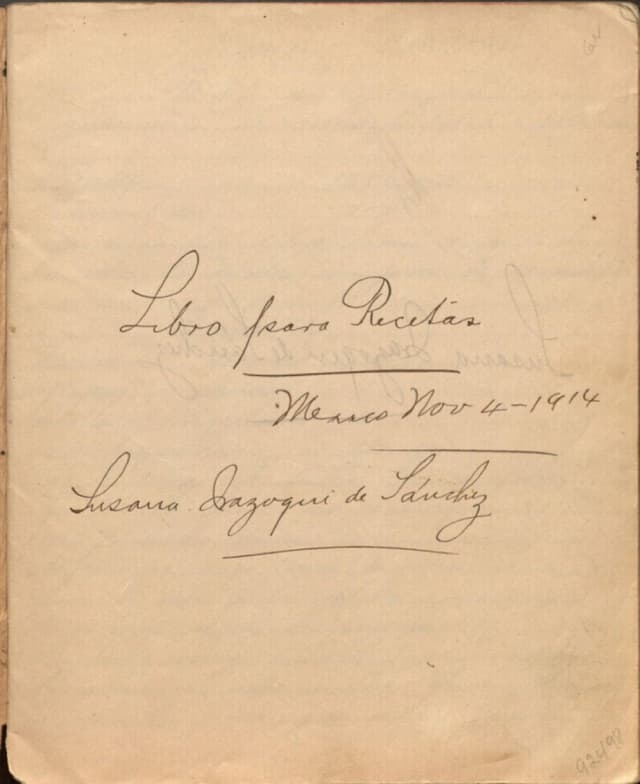 Libro para Recetas
Mexico Nov 4-1914
Susana Irazoqui de Sánchez
92498